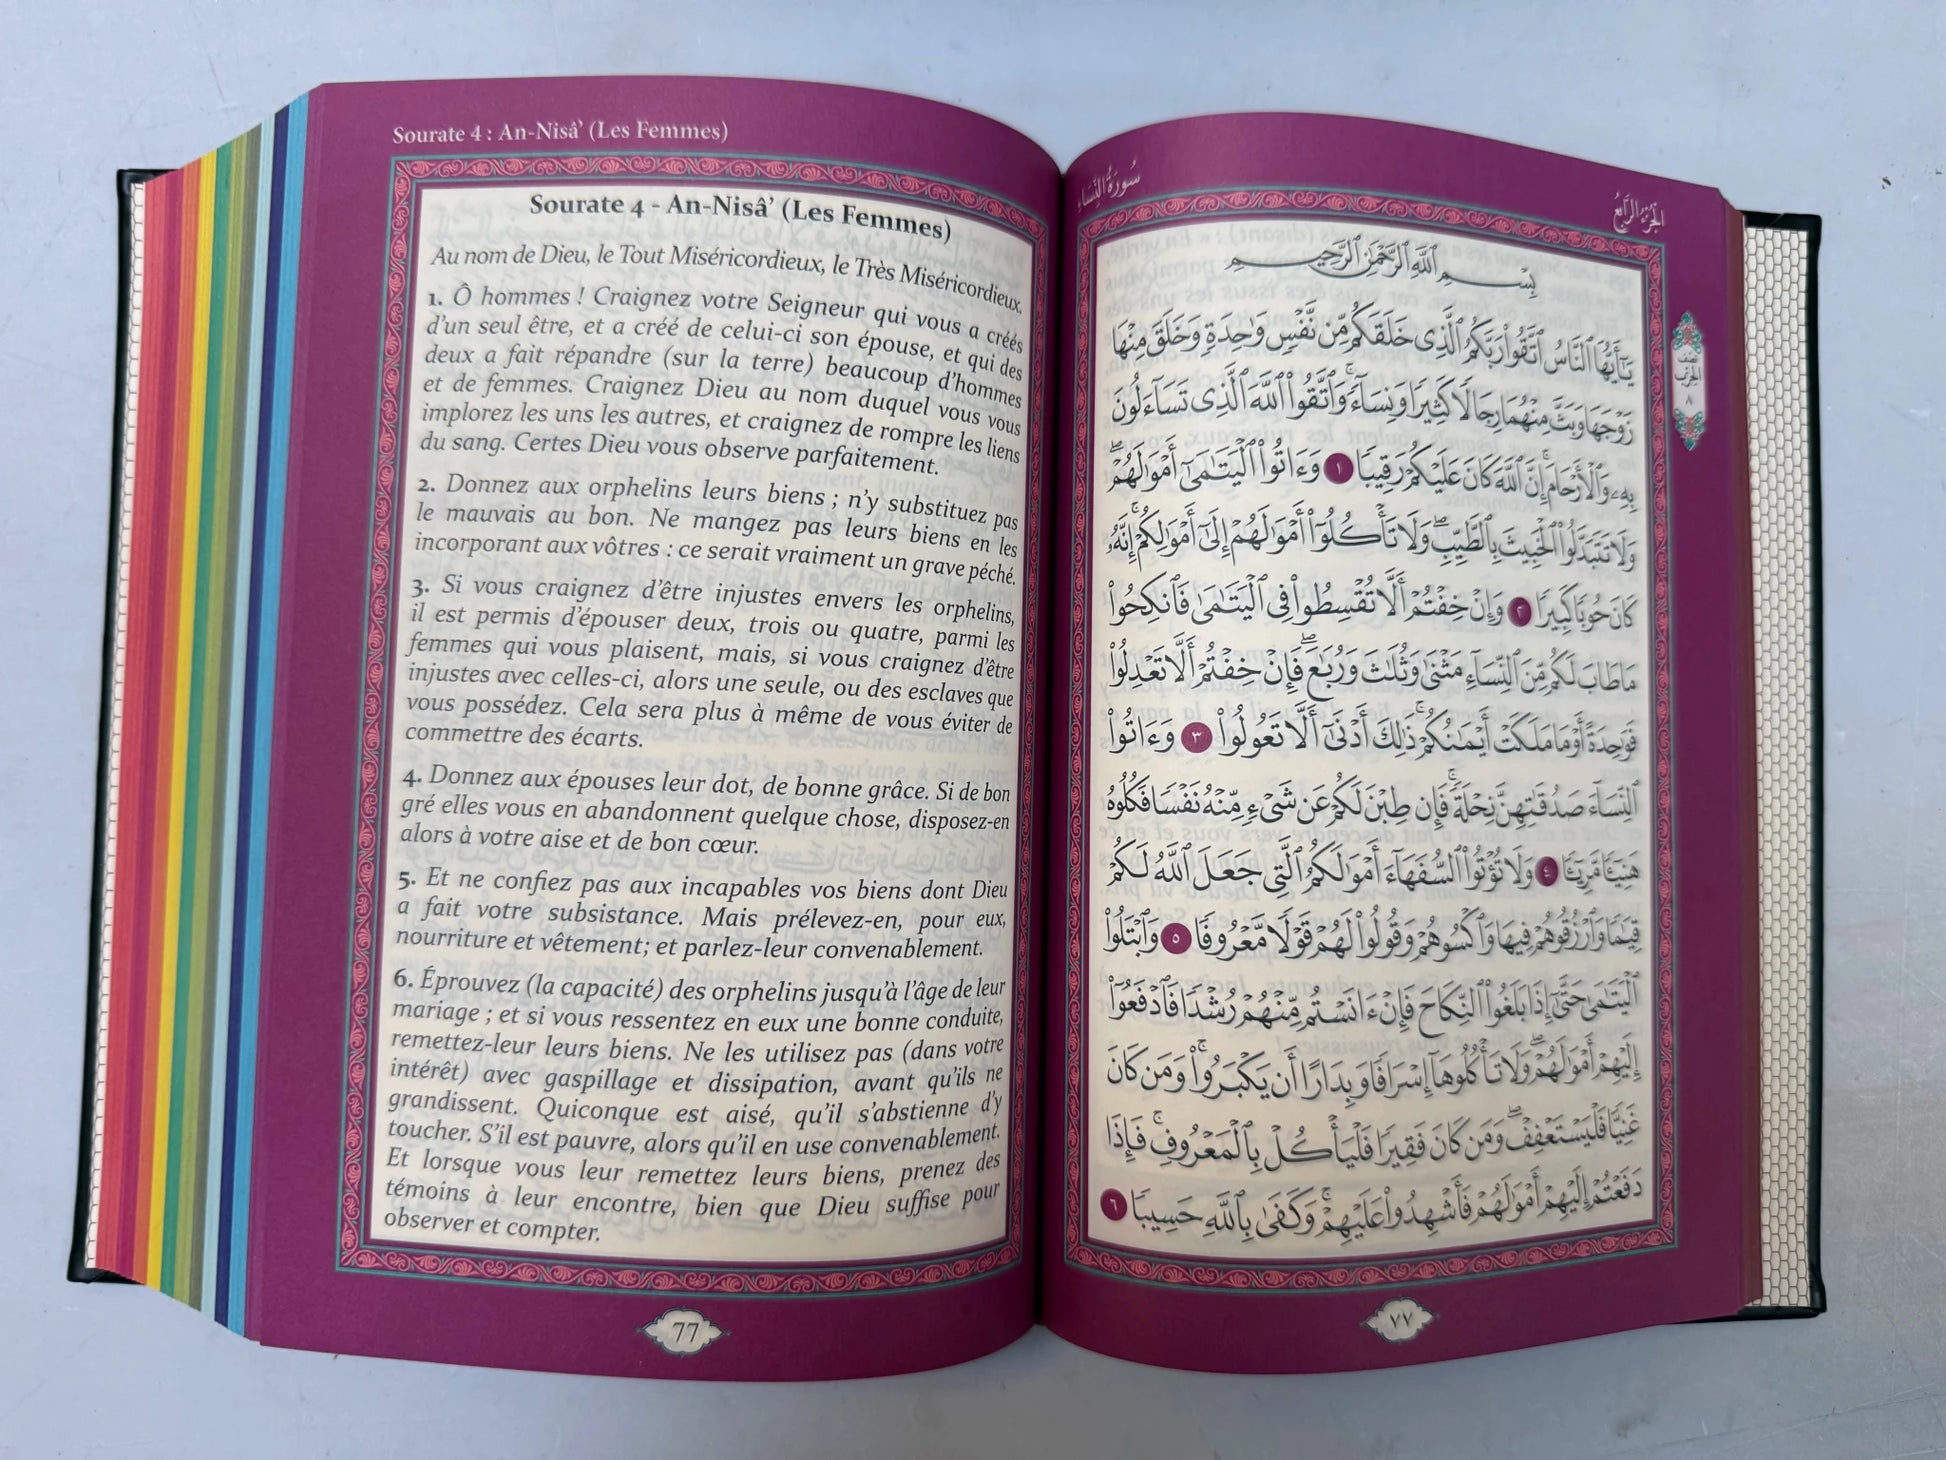 Sourate 4 : An-Nisâ’ (Les Femmes)
Sourate 4 - An-Nisâ’ (Les Femmes)
Au nom de Dieu, le Tout Miséricordieux, le Très Miséricordieux.
1. Ô hommes ! Craignez votre Seigneur qui vous a créés
d’un seul être, et a créé de celui-ci son épouse, et qui des
deux a fait répandre (sur la terre) beaucoup d’hommes
et de femmes. Craignez Dieu au nom duquel vous vous
implorez les uns les autres, et craignez de rompre les liens
du sang. Certes Dieu vous observe parfaitement.
2. Donnez aux orphelins leurs biens ; n’y substituez pas
le mauvais au bon. Ne mangez pas leurs biens en les
incorporant aux vôtres : ce serait vraiment un grave péché.
3. Si vous craignez d’être injustes envers les orphelins,
il est permis d’épouser deux, trois ou quatre, parmi les
femmes qui vous plaisent, mais, si vous craignez d’être
injustes avec celles-ci, alors une seule, ou des esclaves que
vous possédez. Cela sera plus à même de vous éviter de
commettre des écarts.
4. Donnez aux épouses leur dot, de bonne grâce. Si de bon
gré elles vous en abandonnent quelque chose, disposez-en
alors à votre aise et de bon cœur.
5. Et ne confiez pas aux incapables vos biens dont Dieu
a fait votre subsistance. Mais prélevez-en, pour eux,
nourriture et vêtement; et parlez-leur convenablement.
6. Éprouvez (la capacité) des orphelins jusqu’à l’âge de leur
mariage ; et si vous ressentez en eux une bonne conduite,
remettez-leur leurs biens. Ne les utilisez pas (dans votre
intérêt) avec gaspillage et dissipation, avant qu’ils ne
grandissent. Quiconque est aisé, qu’il s’abstienne d’y
toucher. S’il est pauvre, alors qu’il en use convenablement.
Et lorsque vous leur remettez leurs biens, prenez des
témoins à leur encontre, bien que Dieu suffise pour
observer et compter.
77
سُورَةُ النِّسَاءِ
الجُزْءُ الرَّابِعُ
بِسْمِ ٱللَّهِ ٱلرَّحْمَٰنِ ٱلرَّحِيمِ
يَٰٓأَيُّهَا ٱلنَّاسُ ٱتَّقُوا۟ رَبَّكُمُ ٱلَّذِى خَلَقَكُم مِّن نَّفْسٍ وَٰحِدَةٍ وَخَلَقَ مِنْهَا
زَوْجَهَا وَبَثَّ مِنْهُمَا رِجَالًا كَثِيرًا وَنِسَآءً ۚ وَٱتَّقُوا۟ ٱللَّهَ ٱلَّذِى تَسَآءَلُونَ
بِهِۦ وَٱلْأَرْحَامَ ۚ إِنَّ ٱللَّهَ كَانَ عَلَيْكُمْ رَقِيبًا ١ وَءَاتُوا۟ ٱلْيَتَٰمَىٰٓ أَمْوَٰلَهُمْ ۖ
وَلَا تَتَبَدَّلُوا۟ ٱلْخَبِيثَ بِٱلطَّيِّبِ ۖ وَلَا تَأْكُلُوٓا۟ أَمْوَٰلَهُمْ إِلَىٰٓ أَمْوَٰلِكُمْ ۚ إِنَّهُۥ
كَانَ حُوبًا كَبِيرًا ٢ وَإِنْ خِفْتُمْ أَلَّا تُقْسِطُوا۟ فِى ٱلْيَتَٰمَىٰ فَٱنكِحُوا۟
مَا طَابَ لَكُم مِّنَ ٱلنِّسَآءِ مَثْنَىٰ وَثُلَٰثَ وَرُبَٰعَ ۖ فَإِنْ خِفْتُمْ أَلَّا تَعْدِلُوا۟
فَوَٰحِدَةً أَوْ مَا مَلَكَتْ أَيْمَٰنُكُمْ ۚ ذَٰلِكَ أَدْنَىٰٓ أَلَّا تَعُولُوا۟ ٣ وَءَاتُوا۟
ٱلنِّسَآءَ صَدُقَٰتِهِنَّ نِحْلَةً ۚ فَإِن طِبْنَ لَكُمْ عَن شَىْءٍ مِّنْهُ نَفْسًا فَكُلُوهُ
هَنِيٓـًٔا مَّرِيٓـًٔا ٤ وَلَا تُؤْتُوا۟ ٱلسُّفَهَآءَ أَمْوَٰلَكُمُ ٱلَّتِى جَعَلَ ٱللَّهُ لَكُمْ
قِيَٰمًا وَٱرْزُقُوهُمْ فِيهَا وَٱكْسُوهُمْ وَقُولُوا۟ لَهُمْ قَوْلًا مَّعْرُوفًا ٥ وَٱبْتَلُوا۟
ٱلْيَتَٰمَىٰ حَتَّىٰٓ إِذَا بَلَغُوا۟ ٱلنِّكَاحَ فَإِنْ ءَانَسْتُم مِّنْهُمْ رُشْدًا فَٱدْفَعُوٓا۟
إِلَيْهِمْ أَمْوَٰلَهُمْ ۖ وَلَا تَأْكُلُوهَآ إِسْرَافًا وَبِدَارًا أَن يَكْبَرُوا۟ ۚ وَمَن كَانَ
غَنِيًّا فَلْيَسْتَعْفِفْ ۖ وَمَن كَانَ فَقِيرًا فَلْيَأْكُلْ بِٱلْمَعْرُوفِ ۚ فَإِذَا
دَفَعْتُمْ إِلَيْهِمْ أَمْوَٰلَهُمْ فَأَشْهِدُوا۟ عَلَيْهِمْ ۚ وَكَفَىٰ بِٱللَّهِ حَسِيبًا ٦
نصف
الحزب
٨
٧٧